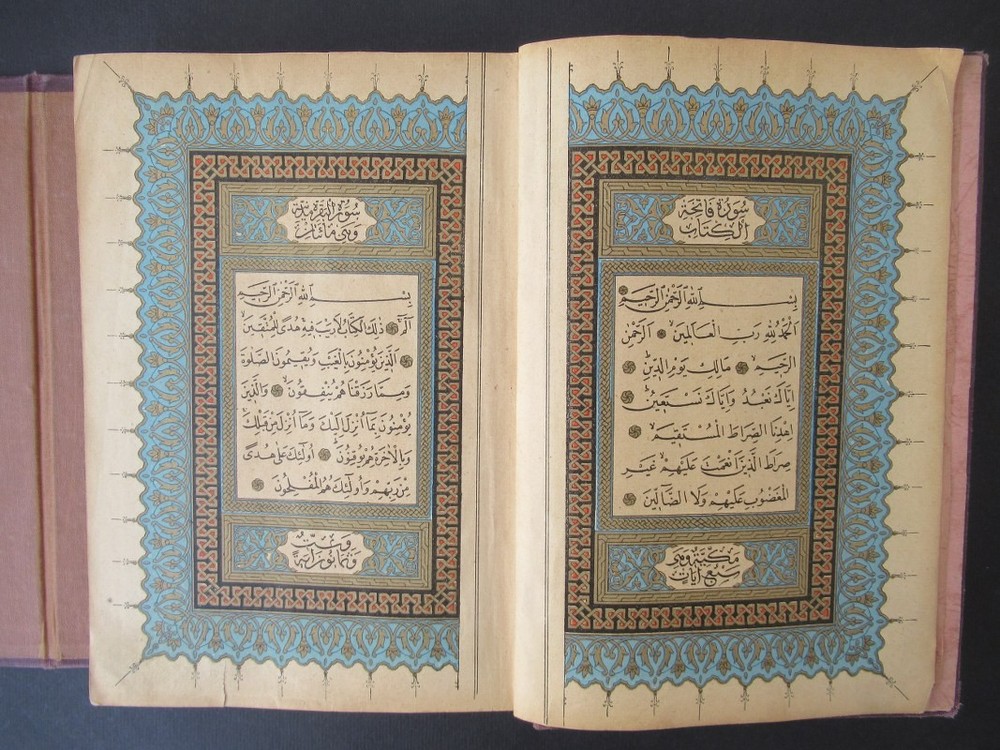 سورة فاتحة
الكتاب
بِسْمِ اللّٰهِ الرَّحْمٰنِ الرَّحِيمِ
اَلْحَمْدُ لِلّٰهِ رَبِّ الْعَالَمِينَ اَلرَّحْمٰنِ
الرَّحِيمِ مَالِكِ يَوْمِ الدِّينِ
اِيَّاكَ نَعْبُدُ وَاِيَّاكَ نَسْتَعِينُ
اِهْدِنَا الصِّرَاطَ الْمُسْتَقِيمَ
صِرَاطَ الَّذِينَ اَنْعَمْتَ عَلَيْهِمْ غَيْرِ
الْمَغْضُوبِ عَلَيْهِمْ وَلَا الضَّالِّينَ
مكية وهي
سبع آيات
سورة البقرة مدنية
وهي مائتان
بِسْمِ اللّٰهِ الرَّحْمٰنِ الرَّحِيمِ
الٓمٓ ذٰلِكَ الْكِتَابُ لَا رَيْبَ فِيهِ هُدًى لِلْمُتَّقِينَ
اَلَّذِينَ يُؤْمِنُونَ بِالْغَيْبِ وَيُقِيمُونَ الصَّلٰوةَ
وَمِمَّا رَزَقْنَاهُمْ يُنْفِقُونَ وَالَّذِينَ
يُؤْمِنُونَ بِمَا اُنْزِلَ اِلَيْكَ وَمَا اُنْزِلَ مِنْ قَبْلِكَ
وَبِالْاٰخِرَةِ هُمْ يُوقِنُونَ اُولٰئِكَ عَلٰى هُدًى
مِنْ رَبِّهِمْ وَاُولٰئِكَ هُمُ الْمُفْلِحُونَ
وست
وثمانون آية